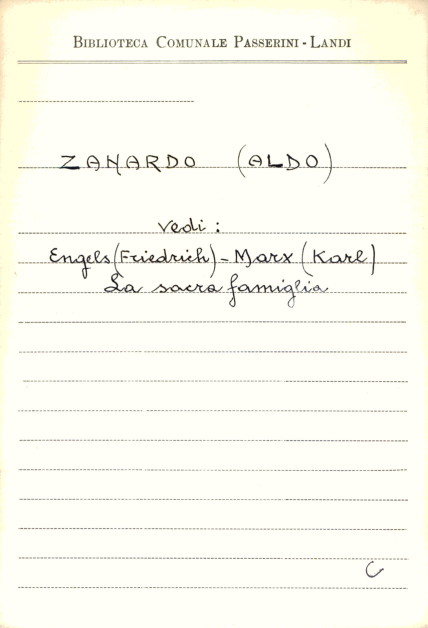 BIBLIOTECA COMUNALE PASSERINI - LANDI
ZANARDO (ALDO)
Vedi :
Engels (Friedrich) - Marx (Karl)
La sacra famiglia
C